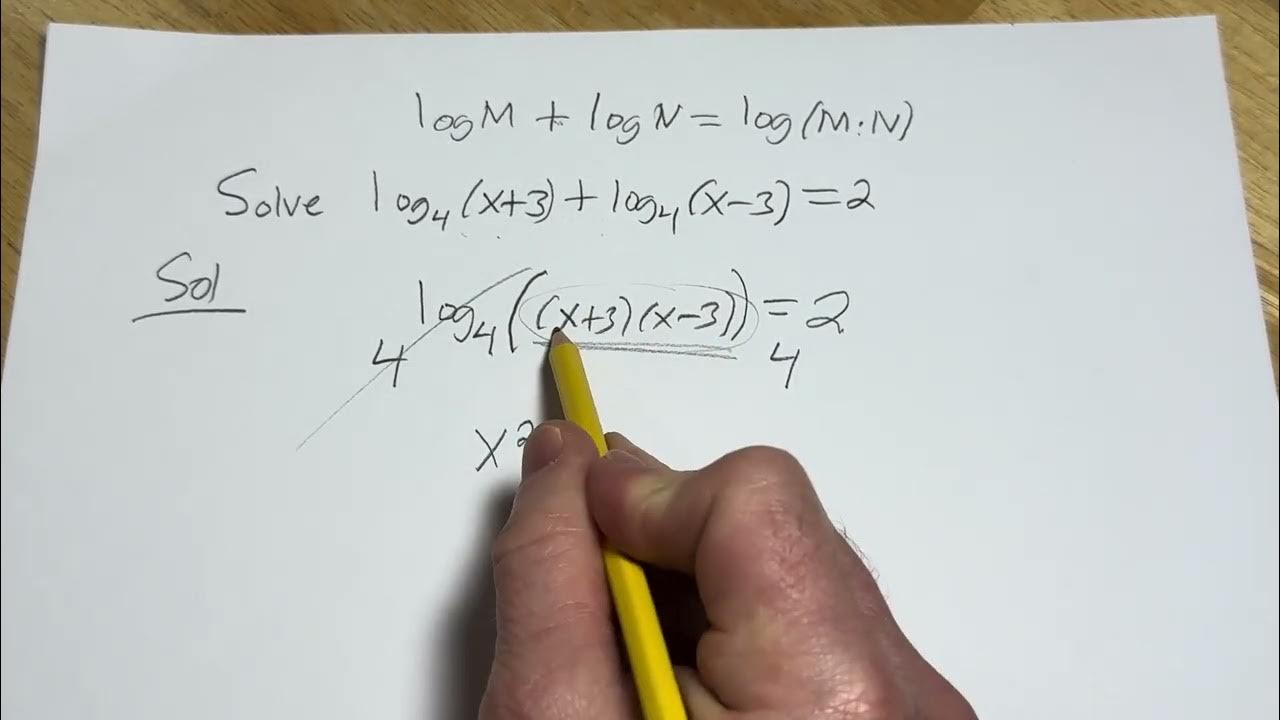 log M + log N = log(M·N)
Solve log₄(x+3) + log₄(x-3) = 2
Sol
4^log₄((x+3)(x-3)) = 4^2
x²